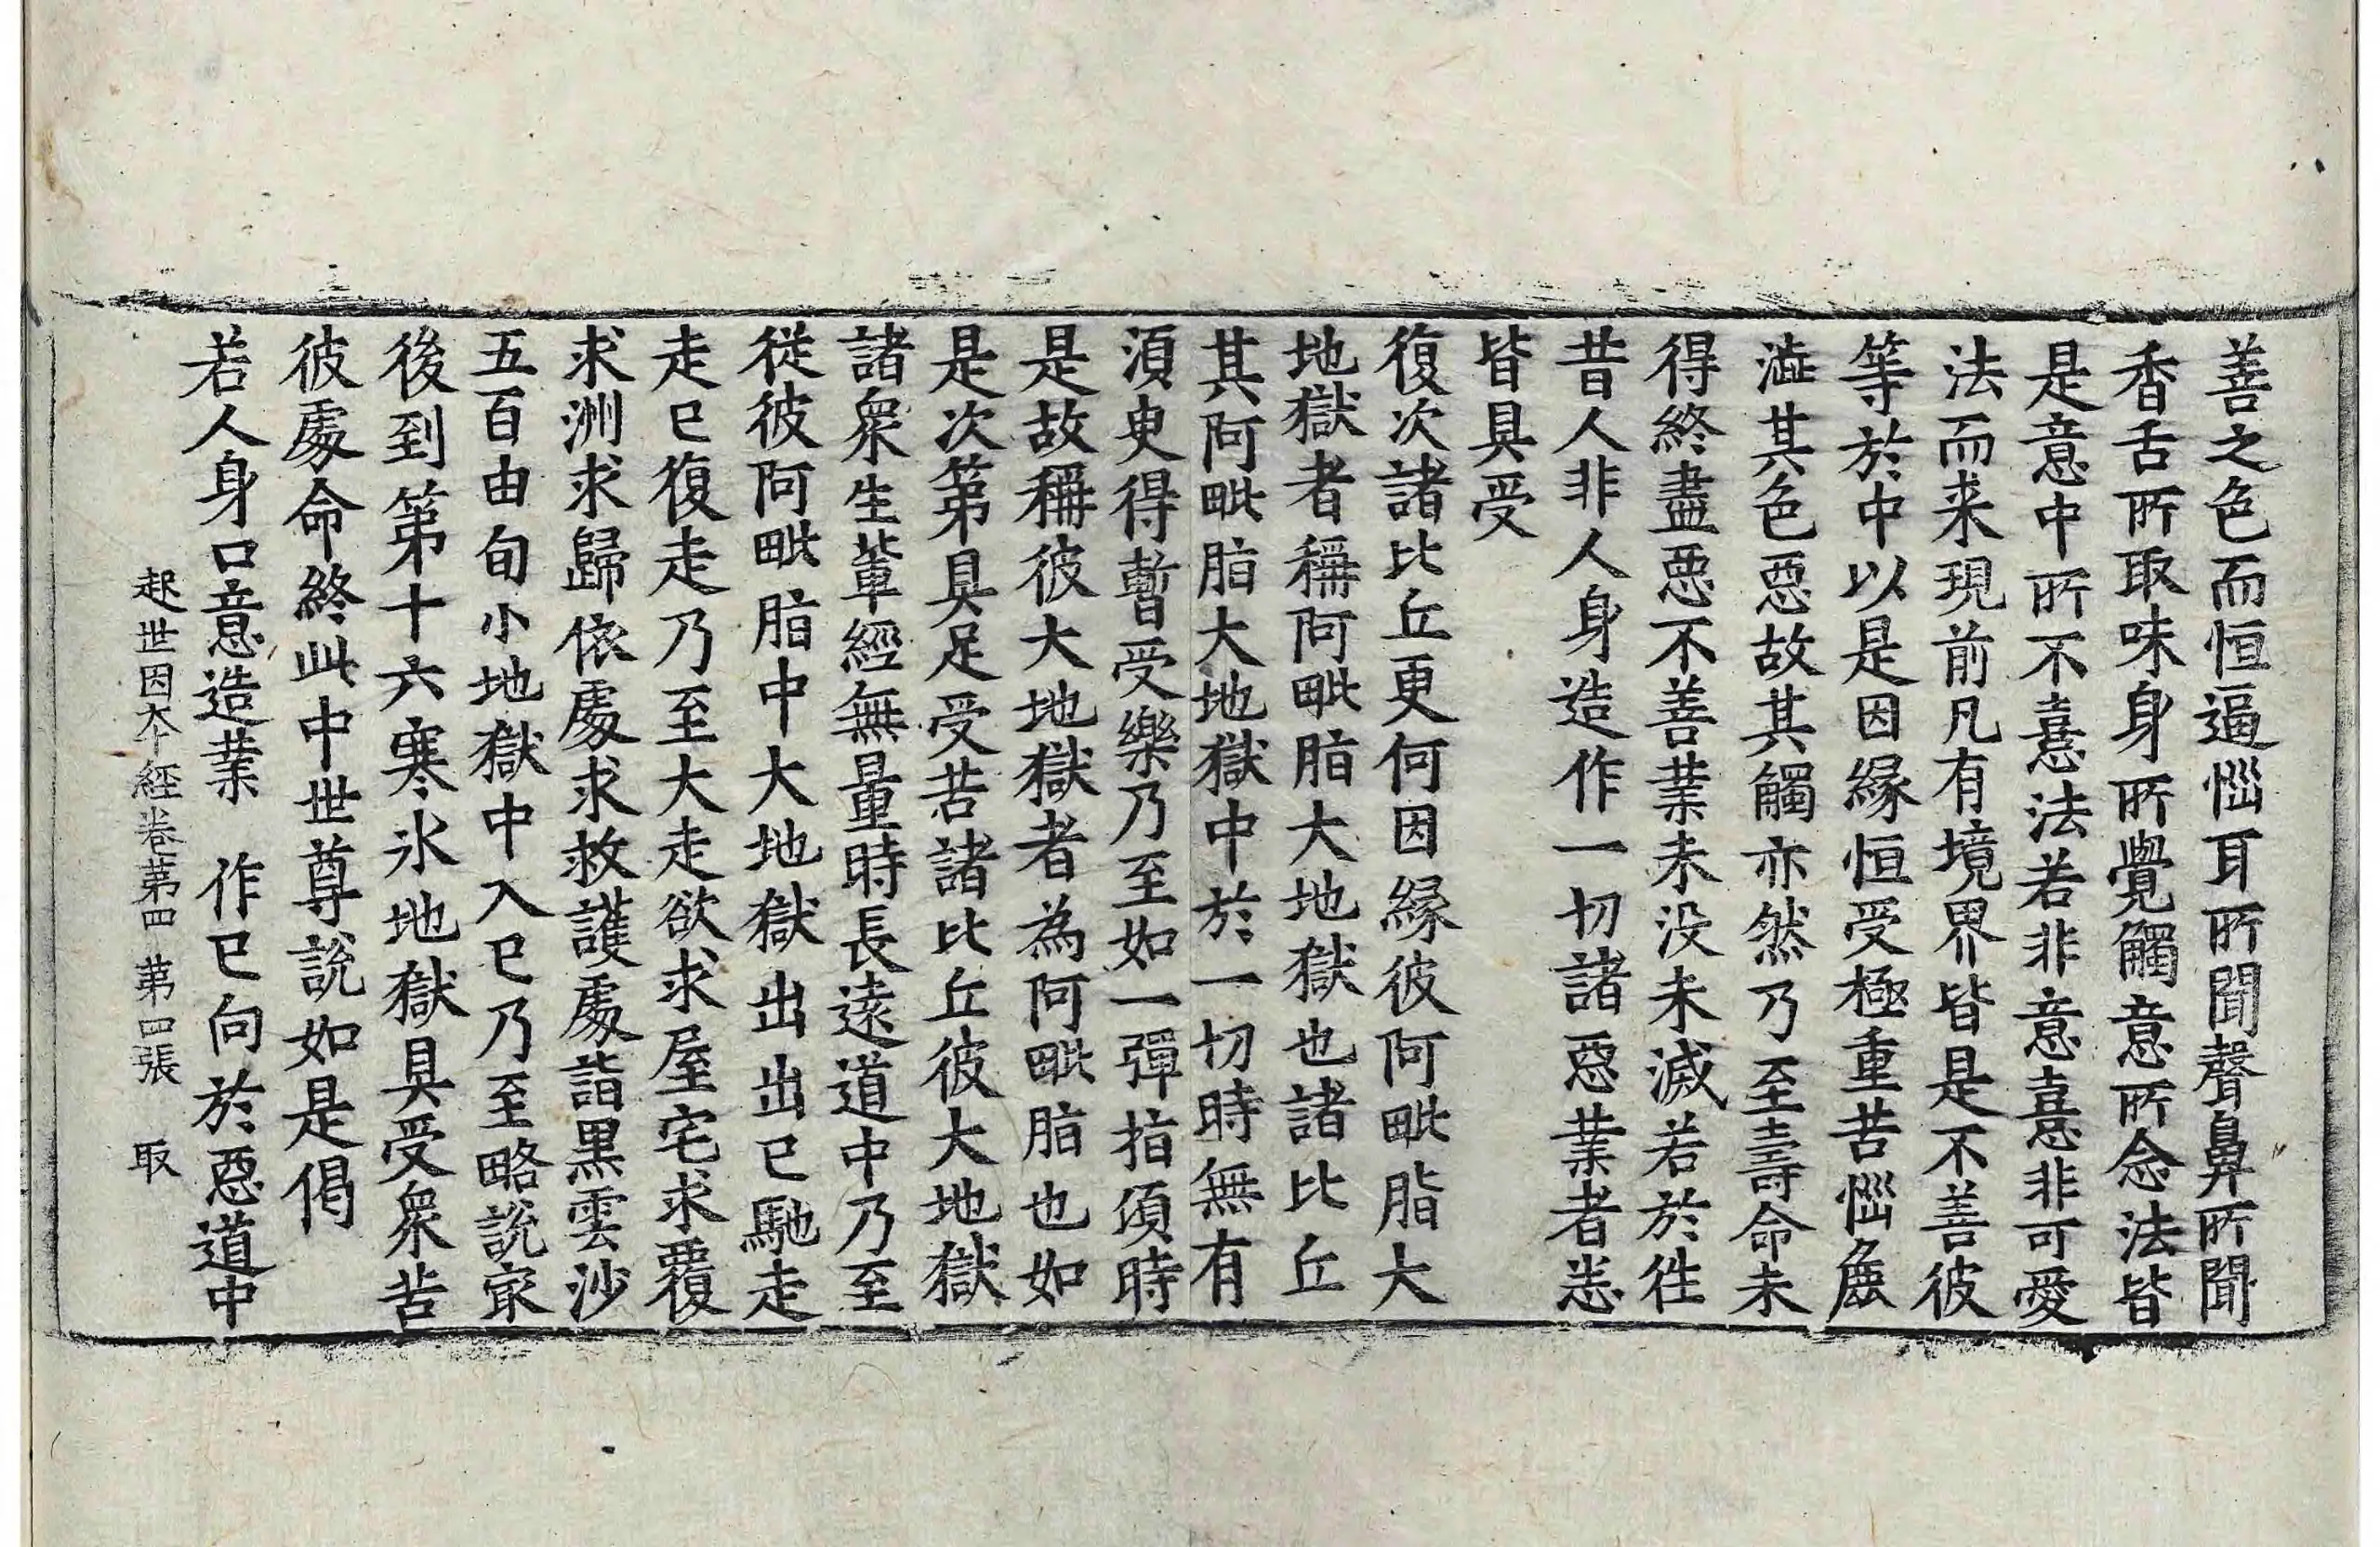 善之色而恒逼惱耳所聞聲鼻所聞
香舌所取味身所覺觸意所念法皆
是意中所不憙法若非意憙非可愛
法而来現前凡有境界皆是不善彼
等於中以是因緣恒受極重苦惱麁
澁其色惡故其觸亦然乃至壽命未
得終盡惡不善業未没未滅若於徃
昔人非人身造作一切諸惡業者悉
皆具受
復次諸比丘更何因緣彼阿毗脂大
地獄者稱阿毗脂大地獄也諸比丘
其阿毗脂大地獄中於一切時無有
須臾得暫受樂乃至如一彈指頃時
是故稱彼大地獄者為阿毗脂也如
是次第具足受苦諸比丘彼大地獄
諸衆生軰經無量時長遠道中乃至
從彼阿毗脂中大地獄出出已馳走
走已復走乃至大走欲求屋宅求覆
求洲求歸依處求救護處詣黒雲沙
五百由旬小地獄中入已乃至略說㝡
後到第十六寒氷地獄具受衆苦
彼處命終此中世尊說如是偈
若人身口意造業　作已向於惡道中
起世因夲經卷第四　第四張　取